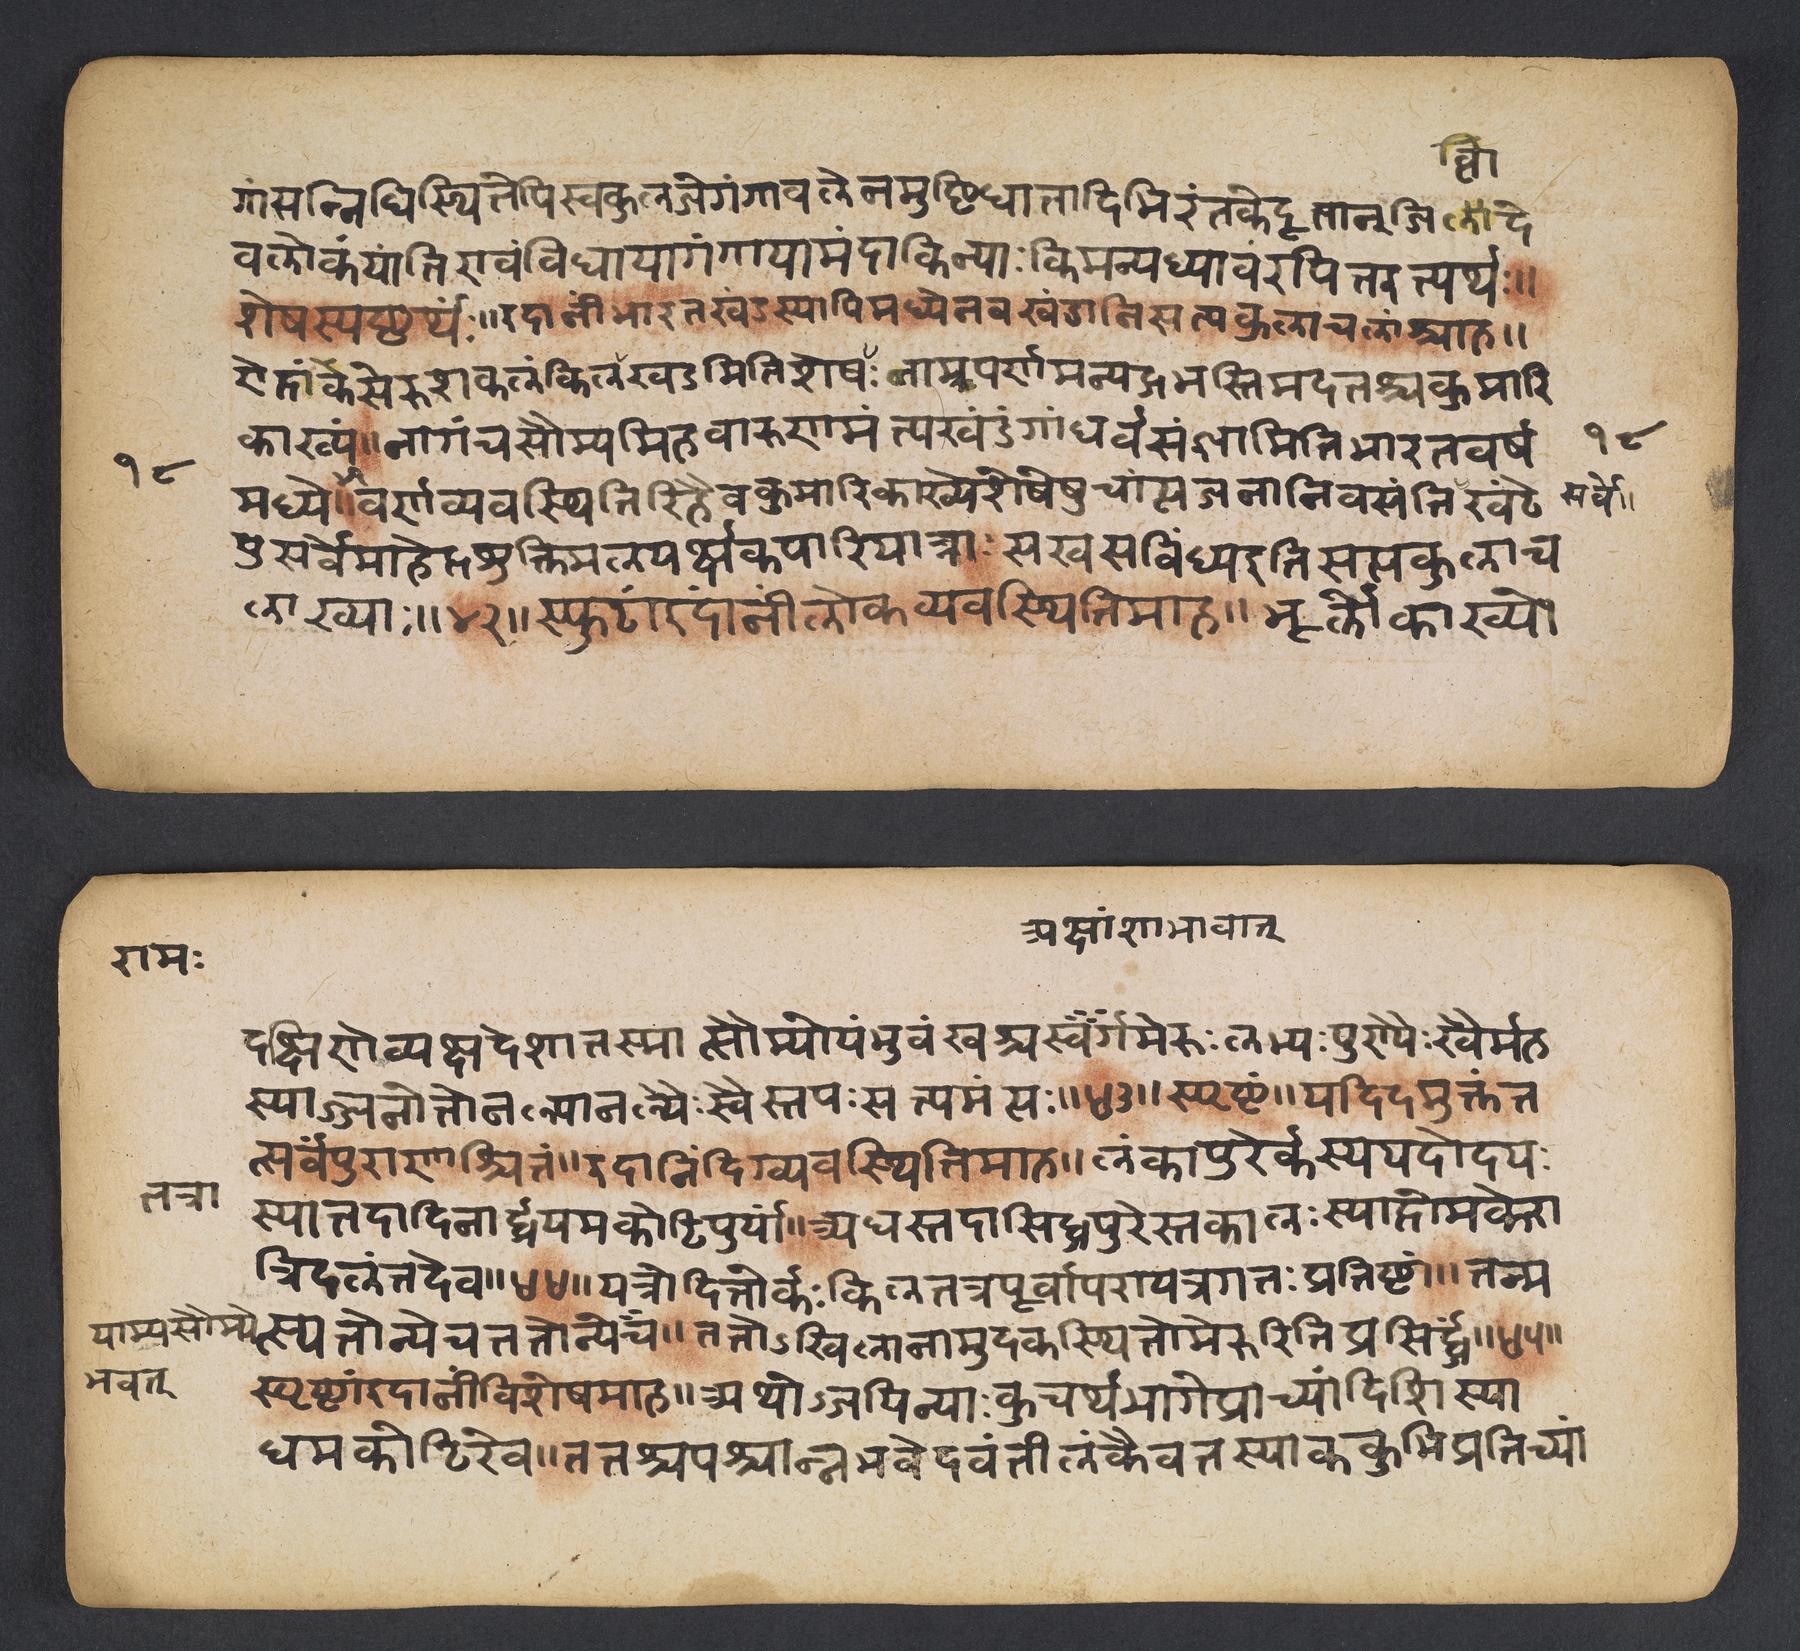 त्वा
गांसन्निधिस्थितेपिस्वकुलजेगंगावलेनमुष्टिघातादिभिरंतकेदूतान्जित्वादे
वलोकंयांतिरावंविधायागंगायामंदाकिन्याःकिमन्यध्यावंरपितइत्यर्थः॥
शेषस्पष्टार्थं॥इदानींभारतखंडस्यापिमध्येनवखंडानिसत्पकुलाचलांश्चाह॥
ऐंद्रंकसेरुशकलंकिलखंडमितिशेषः ताम्रपर्णमन्यद्गभस्तिमदतश्चकुमारि
काख्यं॥नागंचसौम्यमिहवारुणमंत्यखंडंगांधर्वसंज्ञामितिभारतवर्ष
१८
१८
मध्ये॥वर्णव्यवस्थितिरिहैवकुमारिकाख्येशेषेषुचांत्यजजनानिवसंतिखंटे
सर्वे॥
पुसर्वेमाहेंद्रशुक्तिमलयर्क्षकपारियात्राः सखसविंध्यइतिसप्तकुलाच
लाख्याः॥४२॥स्फुटांइदानींलोकव्यवस्थितिमाह॥भूर्लोकाख्यो
रामः
अक्षांशाभावात्
दक्षिणेव्यक्षदेशात्तस्मात्सौम्योयंभुवंखश्चस्वर्गमेरुःलभ्यःपुण्यैःखैर्मह
स्याज्जनोतोनल्पानल्पैःस्वैस्तपःसत्यमंत्यः॥४३॥स्पष्टं॥यदिदमुक्तंत
त्सर्वंपुराणाश्रितं॥इदानिंदिग्व्यवस्थितिमाह॥लंकापुरेर्कस्ययदोदयः
तत्रा
स्यात्तदादिनार्द्धयमकोटिपुर्यां॥अधस्तदासिद्धपुरेस्तकालःस्याद्रोमकेरा
त्रिदलंतदैव॥४४॥यत्रोदितोर्कःकिलतत्रपूर्वापरायत्रगतःप्रतिष्टां॥तन्म
याम्यसौम्ये
त्स्यतोन्येचततोन्येच॥ततोऽखिलानामुदकस्थितोमेरुरितिप्रसिद्धं॥४५॥
भवत्
स्पष्टांइदानींविशेषमाह॥अथोज्जयिन्याःकुचर्थभागेप्राच्यांदिशिस्या
द्यमकोटिरेव॥ततश्चपश्चान्नभवेदवंतीलंकैवतस्याककुभिप्रतिच्यां